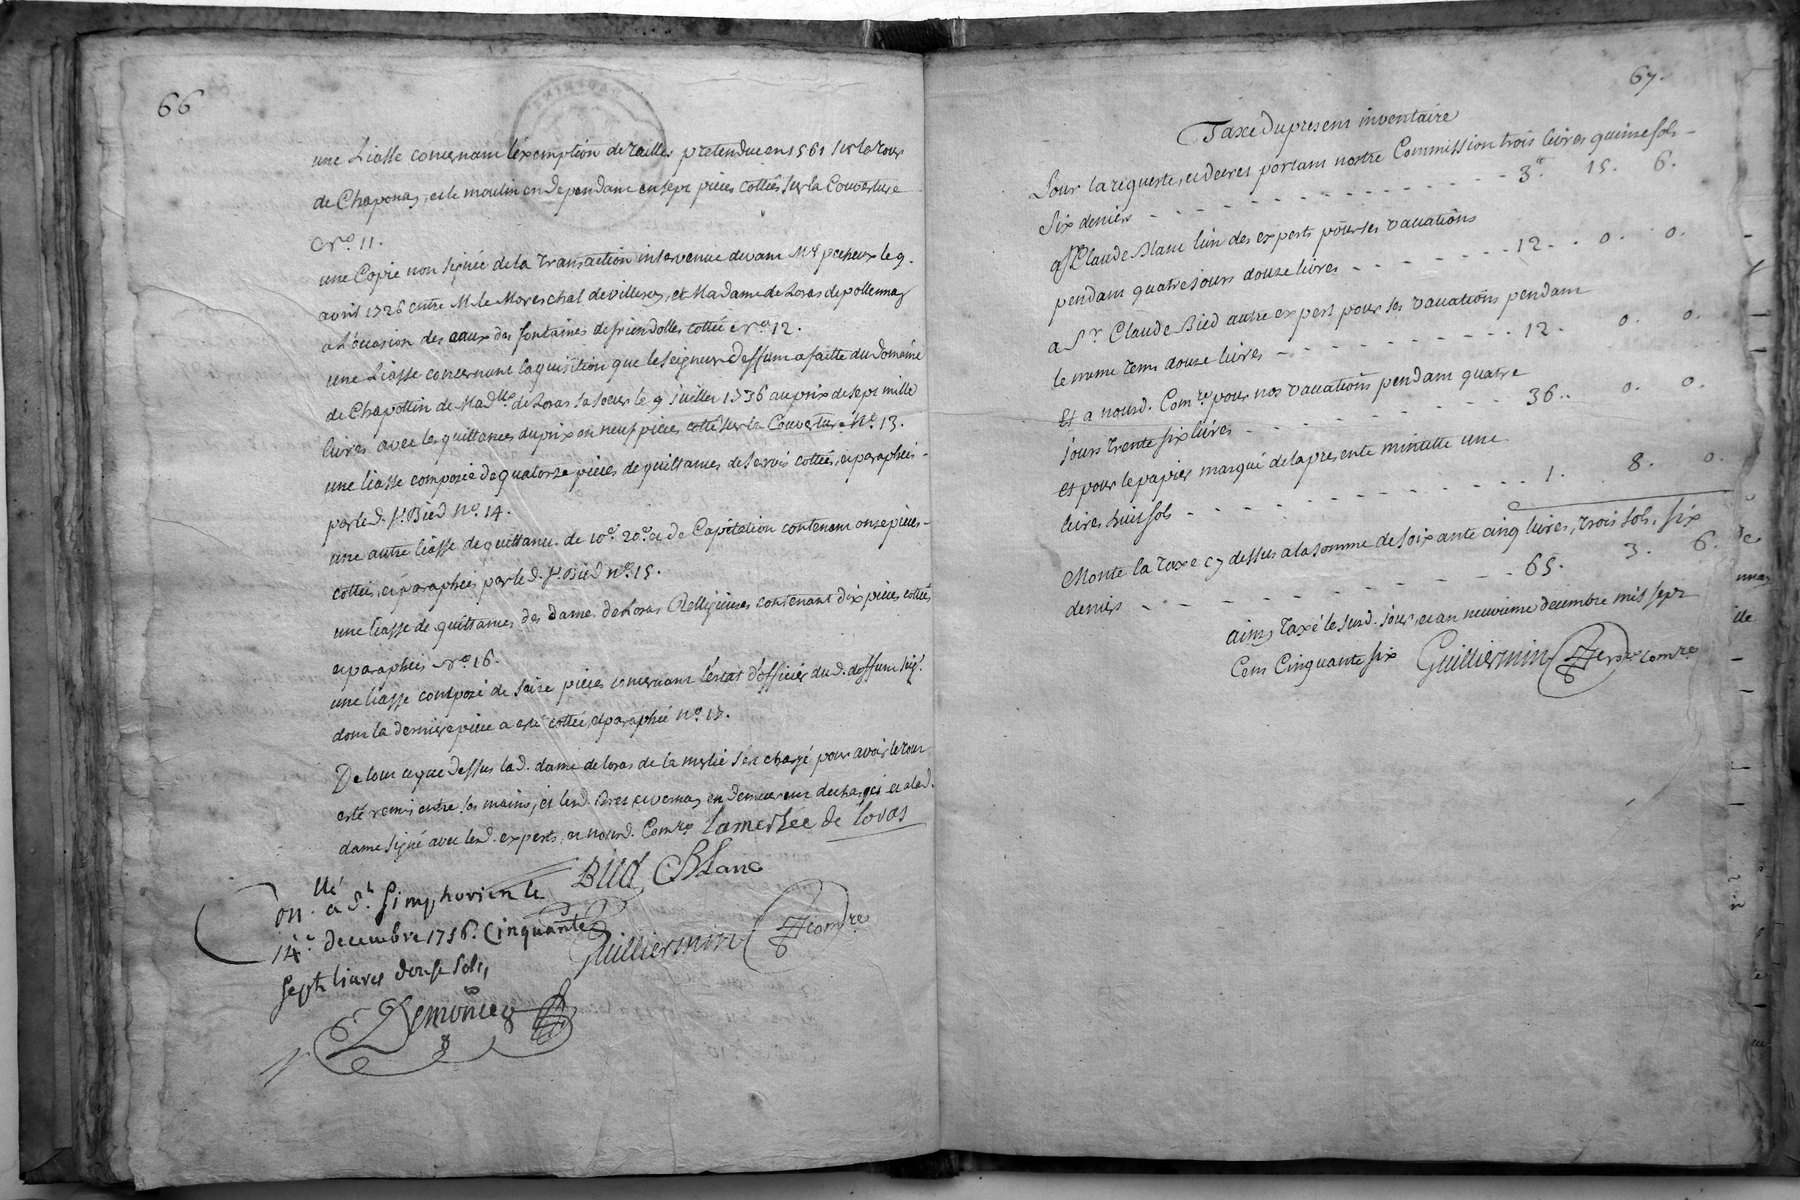 66
une Liasse concernant l'exemption de tailles pretendue en 1561 sur la tour
de Chaponas, et le moulin en dependant en sept pieces cottées sur la Couverture
N.º 11.
une Copie non signée de la transaction intervenue devant Mᵉ pecheux le 9.
avril 1726 entre M. le Mareschal de villeroy, et Madame de Loras de pollenas
a l'occasion des eaux des fontaines de friendolles cottée N.º 12.
une Liasse concernant laquisition que le seigneur deffunt a faitte du domaine
de Chapottin de Mad.lle de Loras sa soeur le 9 juillet 1736 au prix de sept mille
livres avec les quittances du prix en neuf pieces cotté sur la Couverture N.º 13.
une liasse composée de quatorze pieces de quittances de servis cottées, et paraphées
par led. s.r Bied n.º 14.
une autre liasse de quittances de 10.e 20.e et de Capitation contenant onze pieces
cottées, et paraphées par led. s.r Bied n.º 15.
une liasse de quittances des dames de Loras Relligieuses contenant dix pieces cottées
et paraphées N.º 16.
une liasse composé de seize pieces concernant l'estat d'officier du d. deffunt sieg.r
dont la derniere piece a esté cottée, et paraphée n.º 17.
De tout ce que dessus lad. dame de loras de la meslié s'est chargé pour avoir le tout
esté remis entre ses mains, et lesd. en demeurent dechargés et a lad.
dame signé avec lesd. experts, et nousd. Com.re Lameslée de Loras
Bied Blanc
Guilliermin com.re
con.llé a S.t Simphorien le
14.e decembre 1756. Cinquante
sept livres douse sols,
Demoncey
67.
Taxe du present inventaire
Pour la requeste, et decret portant nostre Commission trois livres quinse sols
six deniers - - - 3.tt 15. 6.
a s.r Claude Blanc l'un des experts pour ses vacations
pendant quatre jours douze livres - - - 12. 0. 0.
a s.r Claude Bied autre expert pour ses vacations pendant
le meme tems douze livres - - - 12. 0. 0.
Et a nousd. Com.re pour nos vacations pendant quatre
jours trente six livres - - - 36. 0. 0.
et pour le papier marqué de la presente minutte une
livres huit sols - - - 1. 8. 0.
Monte la taxe cy dessus a la somme de soixante cinq livres, trois sols, six
deniers - - - 65. 3. 6.
ainsy taxé le susd. jour, et an neuvieme decembre mil sept
Cent Cinquante six Guilliermin com.re